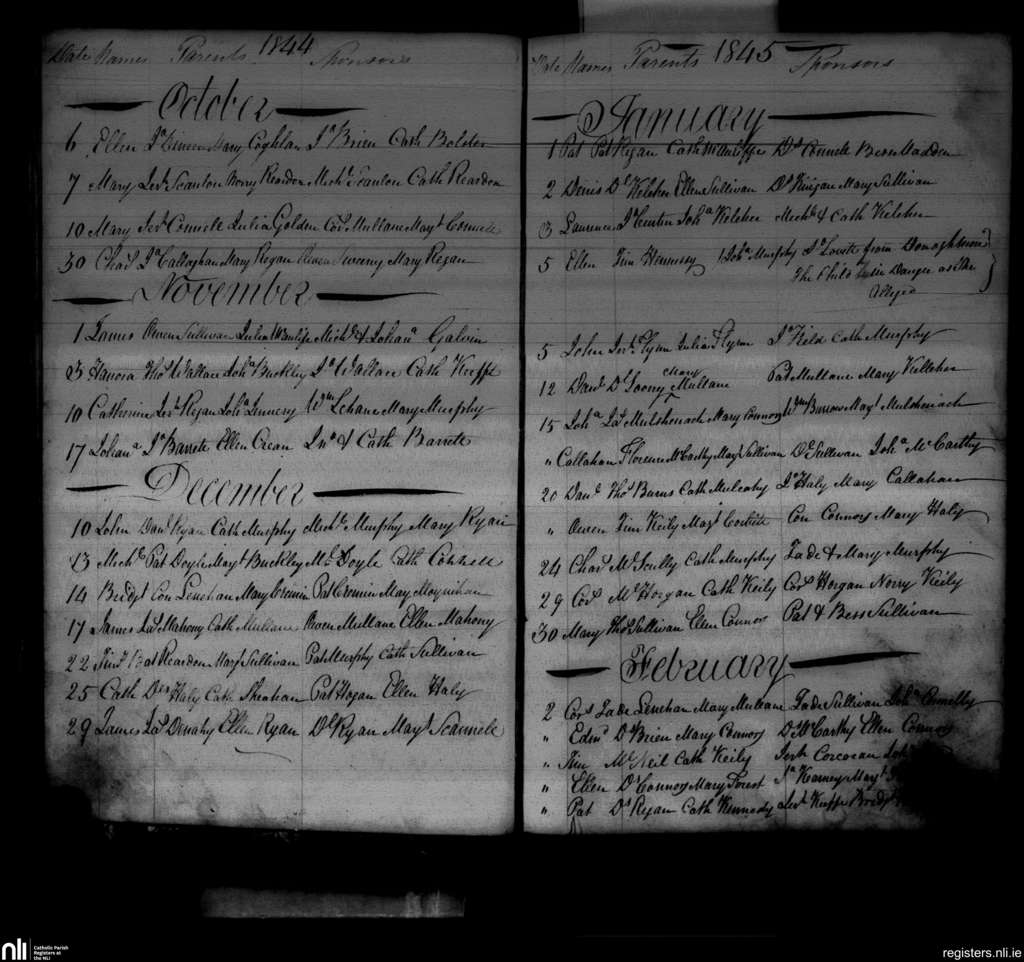 Date Names Parents 1844 Sponsors
October
6 Ellen Js Dineen Mary Coghlan Js Brien Cath Bolster
7 Mary Jerh Scanlon Norry Reardon Michl Scanlon Cath Reardon
10 Mary Jerh Connell Julia Golden Cors Mullane Mayt Connell
30 Chas Js Callaghan Mary Regan Sweeny Mary Regan
November
1 James Owen Sullivan Julia Michl & Johana Galvin
3 Hanora Thos Wallace Joha Buckley Js Wallace Cath Keeffe
10 Catherine Jerh Regan Joha Wm Lehane Mary Murphy
17 Johana Js Barrett Ellen Crean Jno & Cath Barrett
December
10 John Danl Ryan Cath Murphy Michl Murphy Mary Ryan
13 Michl Pat Doyle Mayt Buckley Ml Doyle Cath Connell
14 Bridgt Con Lenehan Mary Cremin Pat Cremin May Moynihan
17 James Jas Mahony Cath Mullane Owen Mullane Ellen Mahony
22 Timy Bat Reardon Mayt Sullivan Pat Murphy Cath Sullivan
25 Cath Des Haly Cath Sheahan Pat Hogan Ellen Haly
29 James Jas Donahy Ellen Ryan Dl Ryan Mayt Scannell
Date Names Parents 1845 Sponsors
January
1 Pat Pat Regan Cath McAuliffe Ds Connell Bess Madden
2 Denis Dl Keleher Ellen Sullivan Ds Finigan Mary Sullivan
3 Laurence Js Joha Keleher Michl & Cath Keleher
5 Ellen Tim Hennessy Joha Murphy from Donaghmore
The Child being in Danger as the
alleged
5 John Jerh Flynn Julia Flynn Js Field Cath Murphy
12 Danl Ds Looney Mary Mullane Pat Mullane Mary Kelleher
15 Joha Jas Mulshenach Mary Connor Wm Burrows Mayt Mulshenach
" Callahan Florence McCarthy Mayt Sullivan Ds Sullivan Joha McCarthy
20 Danl Thos Burns Cath Mulcahy Js Haly Mary Callahan
" Owen Tim Keily Mayt Corbett Con Connor Mary Haly
24 Chas Ml Scully Cath Murphy Jade & Mary Murphy
29 Cors Ml Horgan Cath Keily Cors Horgan Norry Keily
30 Mary Thos Sullivan Ellen Connor Pat & Bess Sullivan
February
2 Cors Jade Lenehan Mary Mullane Jade Sullivan Joha Connelly
" Edmd Ds Brien Mary Connor Ds McCarthy Ellen Connor
" Tim Ml Neil Cath Keily Jerh Corcoran
" Ellen Ds Connor Mary Forest Js Kearney Mayt
" Pat Ds Regan Cath Kennedy Jerh Keeffe Bridgt
nli Catholic Parish
Registers at
the NLI
registers.nli.ie